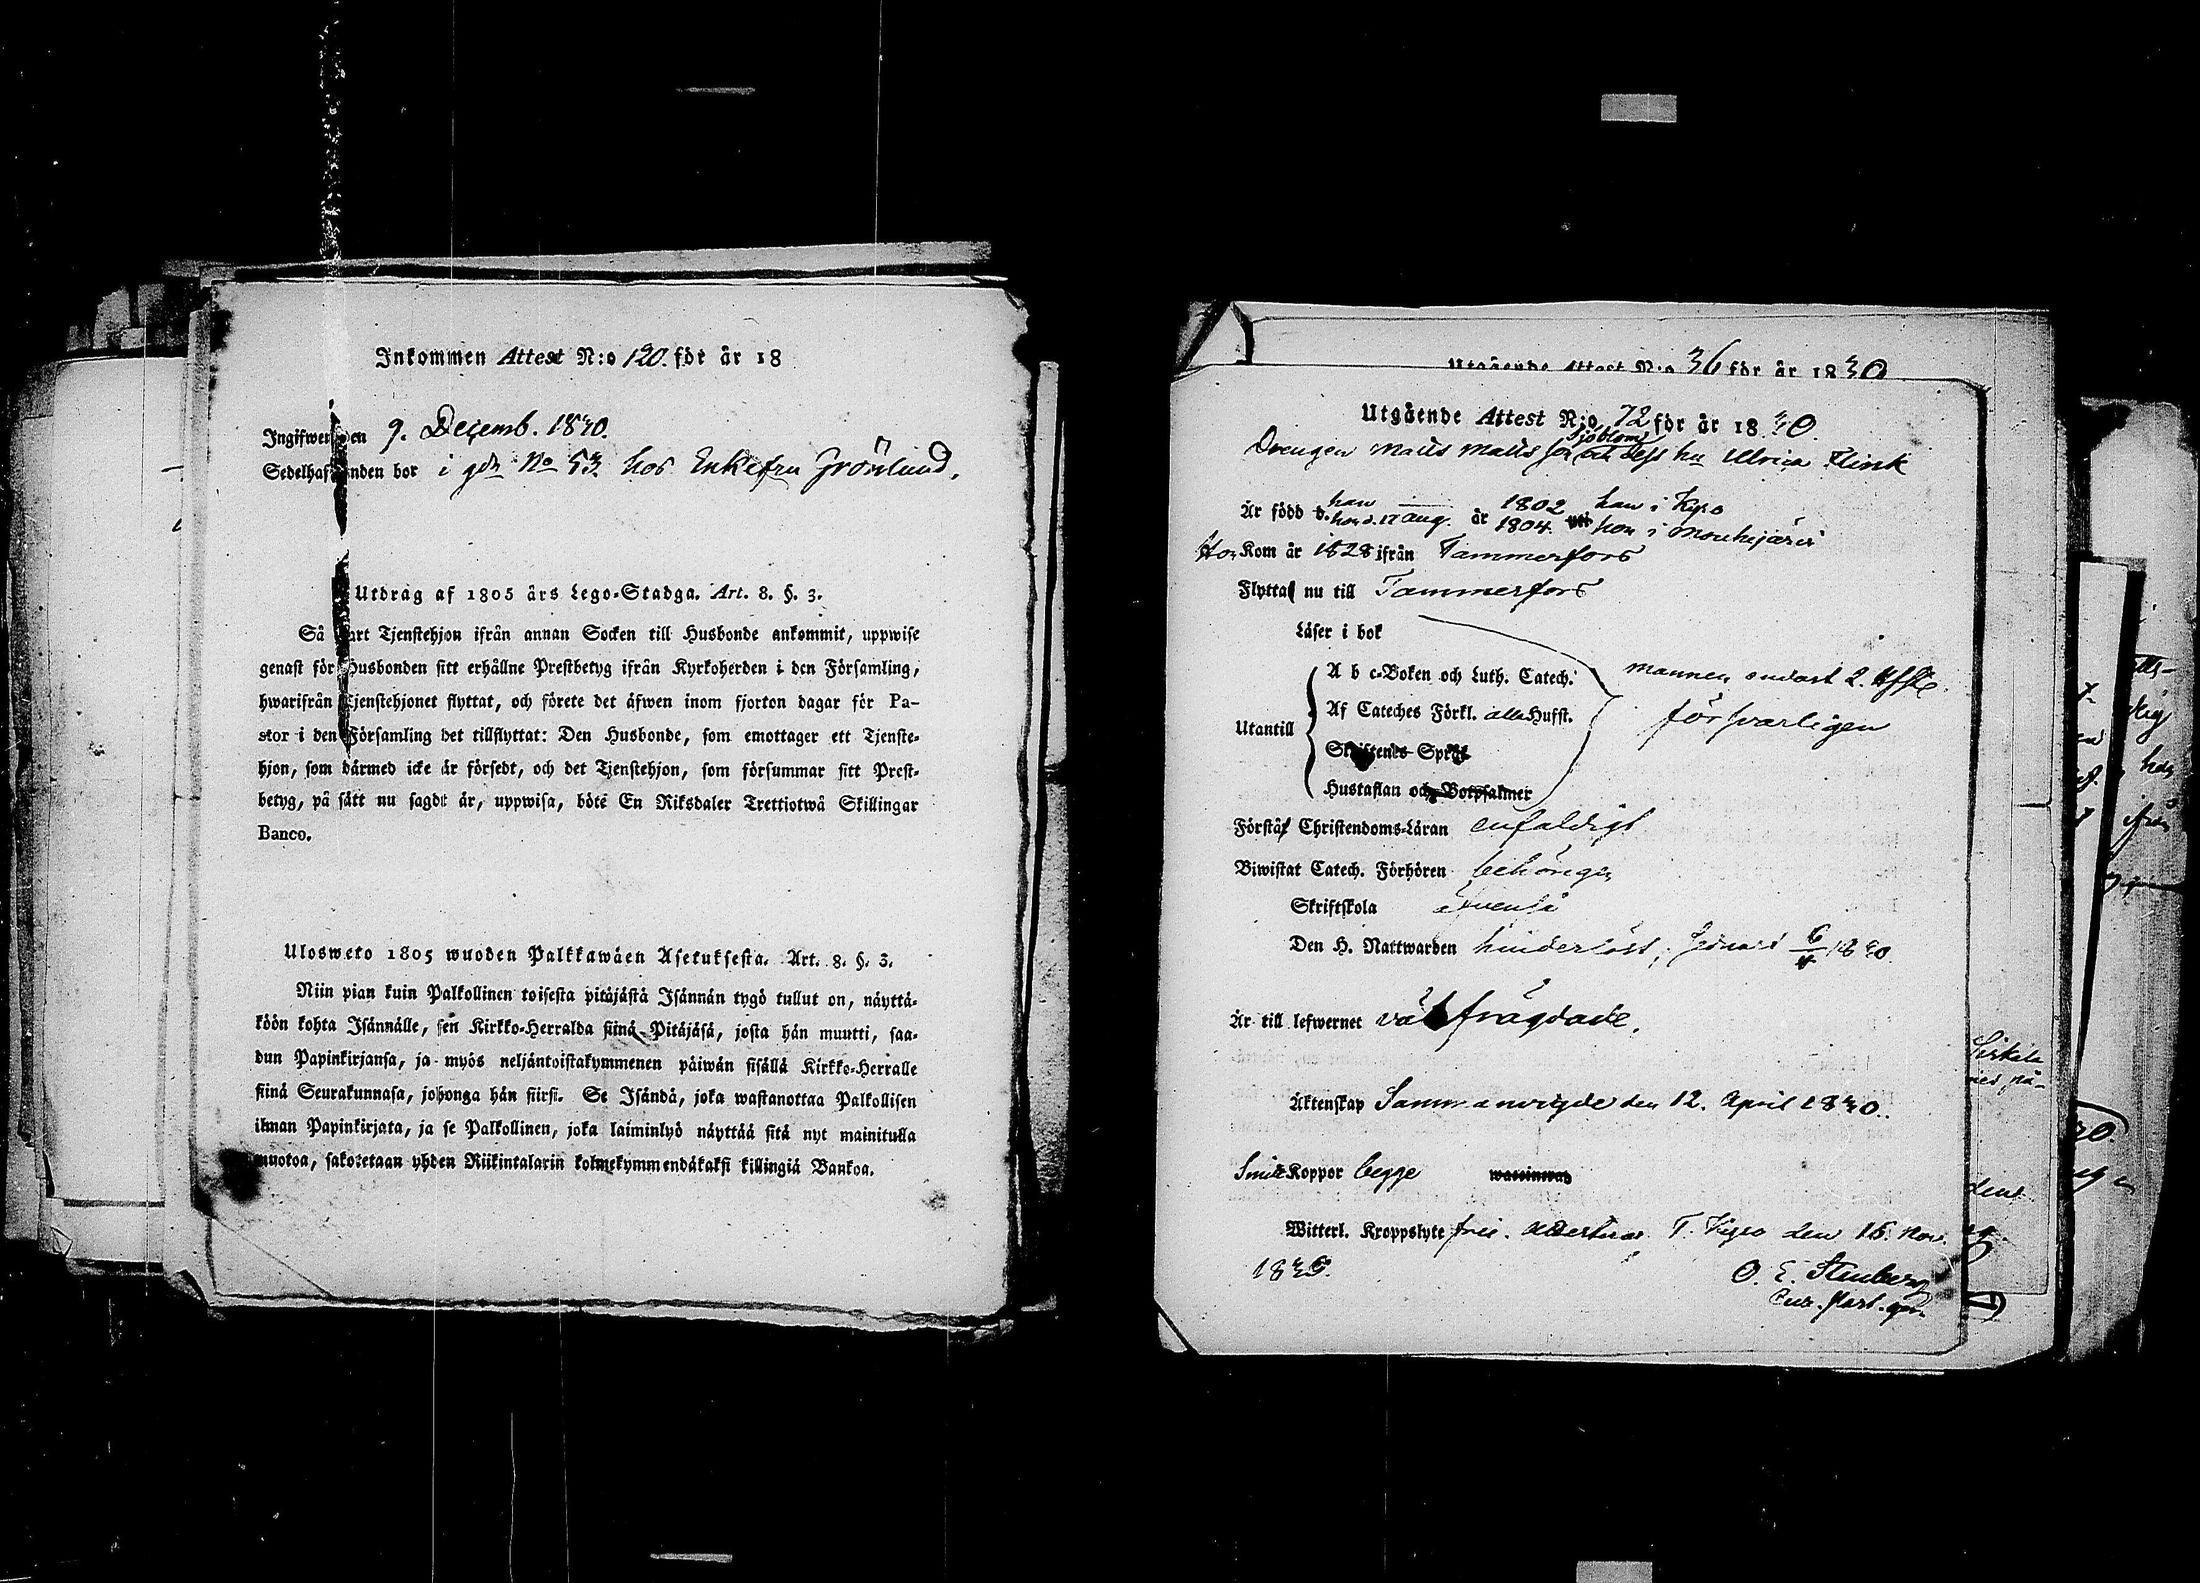 Inkommen Attest N:o 120. för år 18
Ingifwen den 9. Decemb. 1830.
Sedelhafwanden bor i gdn No 53 hos Enkefru Grönlund.
Utdrag af 1805 års Lego-Stadga. Art. 8. §. 3.
Så snart Tjenstehjon ifrån annan Socken till Husbonde ankommit, uppwise
genast för Husbonden sitt erhållne Prestbetyg ifrån Kyrkoherden i den Församling,
hwarifrån Tjenstehjonet flyttat, och förete det äfwen inom fjorton dagar för Pa-
stor i den Församling det tillflyttat: Den Husbonde, som emottager ett Tjenste-
hjon, som därmed icke är försedt, och det Tjenstehjon, som försummar sitt Prest-
betyg, på sätt nu sagdt är, uppwisa, böte En Riksdaler Trettiotwå Skillingar
Banco.
Ulosweto 1805 wuoden Palkkawäen Asetuksesta. Art. 8. §. 3.
Niin pian kuin Palkollinen toisesta pitäjästä Isännän tygö tullut on, näyttä-
köön kohta Isännälle, sen Kirkko-Herralda siinä Pitäjäsä, josta hän muutti, saa-
dun Papinkirjansa, ja myös neljäntoistakymmenen päiwän sisällä Kirkko-Herralle
siinä Seurakunnasa, johonga hän siirsi. Se Isändä, joka wastanottaa Palkollisen
ilman Papinkirjata, ja se Palkollinen, joka laiminlyö näyttää sitä nyt mainitulla
muotoa, sakotetaan yhden Riikintalarin kolmekymmendäkaksi killingiä Bankoa.
Utgående Attest N:o 36 för år 1830
Utgående Attest N:o 72 för år 1830.
Sjöblom
Drengen Matts Matts son och dess hu Ulrica Flink
Är född d. han 1802 han i Kyro
hon d. 17 Aug. år 1804. hon i Mouhijärvi
Hon Kom år 1828 ifrån Tammerfors
Flytta nu till Tammerfors
Läser i bok
A b c-Boken och Luth. Catech. mannen endast 2. Hfst
Utantill Af Cateches Förkl. alla Hufst. försvarligen
Skriftenes Språk
Hustaflan och Botpsalmer
Förstå Christendoms-Läran enfaldigt
Biwistat Catech. Förhören behörigen
Skriftskola äfvenså
Den H. Nattwarden hinderlöst, senast 1830.
Är till lefwernet välfrägdade.
Äktenskap Sammanvigde den 12. April 1830.
Smit Koppor begge waccinerad
Witterl. Kroppslyte frie. Attesterar T. Kyro den 15. Nov.
1830.
O. E. Stenberg
Cur. Past.